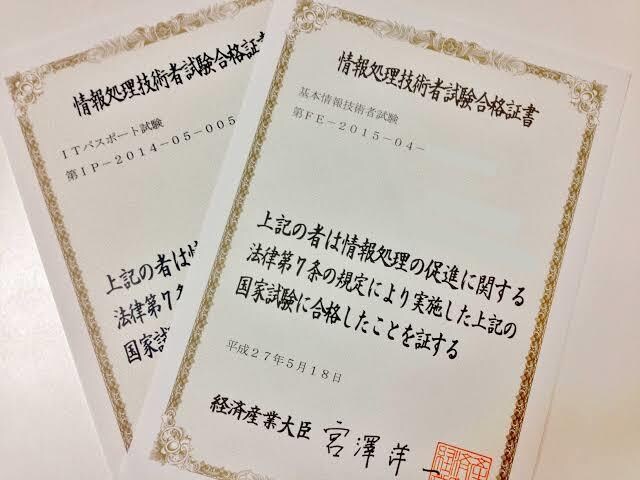 情報処理技術者試験合格証書
ITパスポート試験
第IP-2014-05-005
上記の者は情
法律第7
国家試
情報処理技術者試験合格証書
基本情報技術者試験
第FE-2015-04-
上記の者は情報処理の促進に関する
法律第7条の規定により実施した上記の
国家試験に合格したことを証する
平成27年5月18日
経済産業大臣 宮澤洋一